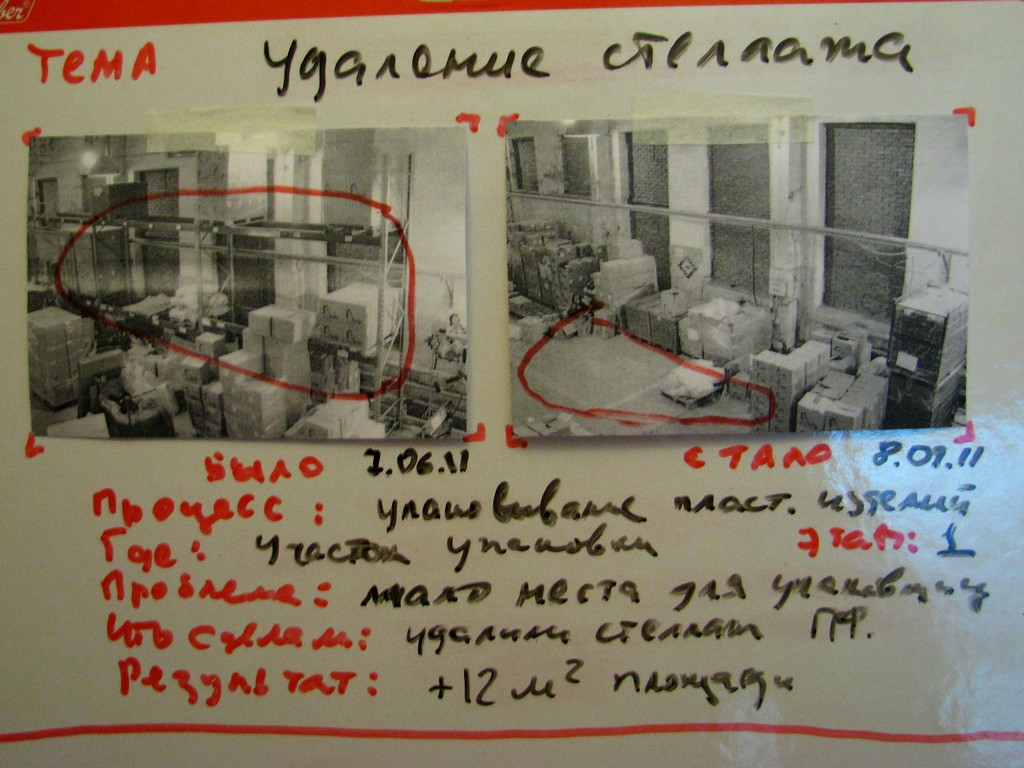 ber®
Тема Удаление стеллажа
Было 7.06.11
Стало 8.07.11
Процесс: упаковывание пласт. изделий
Где: Участок упаковки Этап: 1
Проблема: мало места для упаковщиц
Что сделали: удалили стеллаж ПФ.
Результат: +12 м² площади